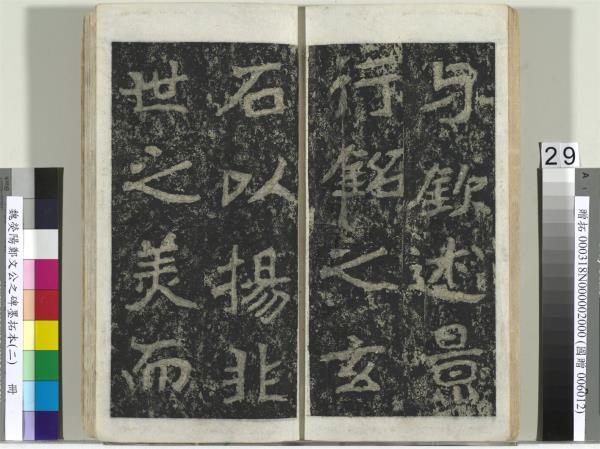 与欽述景
行銘之玄
石以揚非
世之美而
29
贈拓 000318N000002000 (國贈 006012)
魏滎陽鄭文公之碑墨拓本(二) 冊